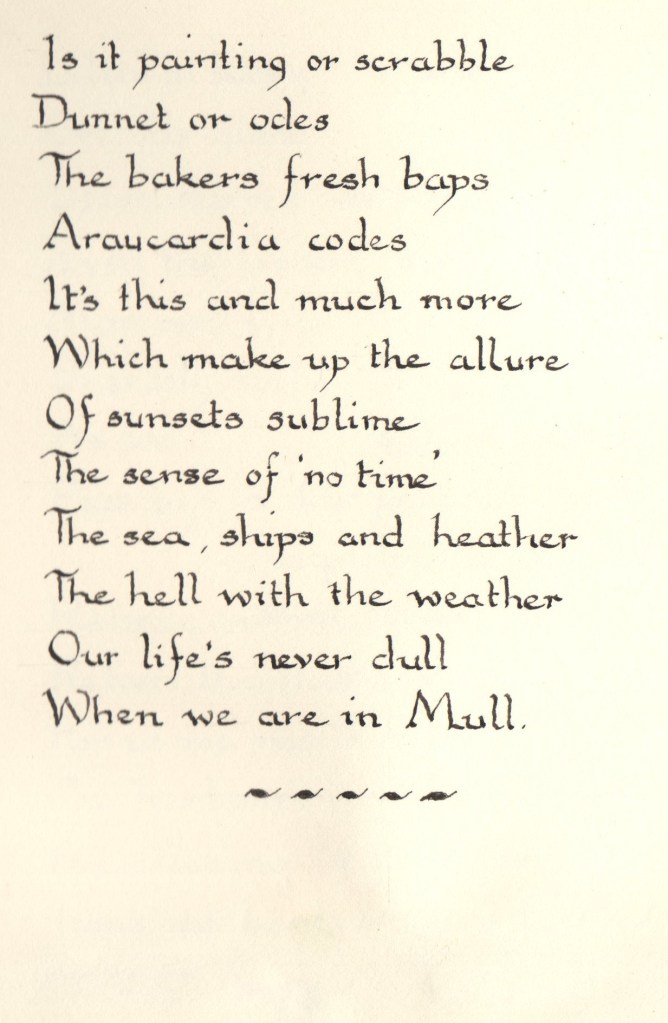 Is it painting or scrabble
Dunnet or odes
The bakers fresh baps
Araucardia codes
It's this and much more
Which make up the allure
Of sunsets sublime
The sense of 'no time'
The sea, ships and heather
The hell with the weather
Our life's never dull
When we are in Mull.